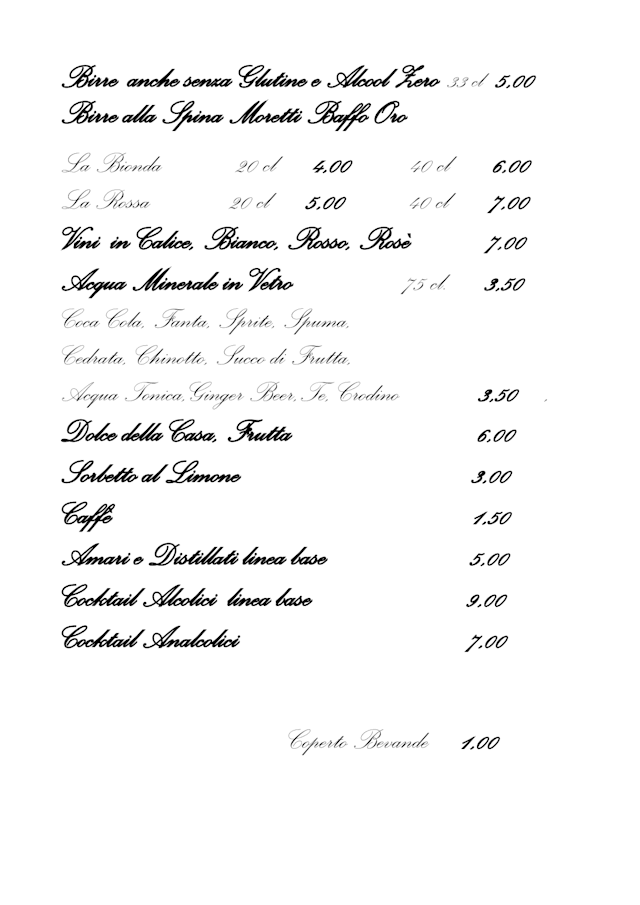 Birre anche senza Glutine e Alcool Zero 33 cl 5,00
Birre alla Spina Moretti Baffo Oro
La Bionda 20 cl 4,00 40 cl 6,00
La Rossa 20 cl 5,00 40 cl 7,00
Vini in Calice, Bianco, Rosso, Rosè 7,00
Acqua Minerale in Vetro 75 cl. 3,50
Coca Cola, Fanta, Sprite, Spuma,
Cedrata, Chinotto, Succo di Frutta,
Acqua Tonica,Ginger Beer,Te, Crodino 3,50 ,
Dolce della Casa, Frutta 6,00
Sorbetto al Limone 3,00
Caffè 1,50
Amari e Distillati linea base 5,00
Cocktail Alcolici linea base 9,00
Cocktail Analcolici 7,00
Coperto Bevande 1,00